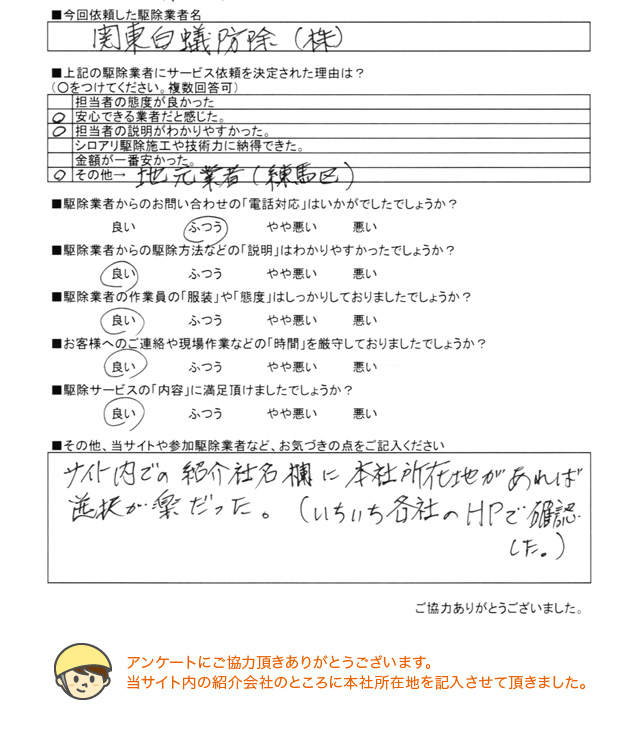 ■今回依頼した駆除業者名
関東白蟻防除(株)
■上記の駆除業者にサービス依頼を決定された理由は？
(○をつけてください。複数回答可)
担当者の態度が良かった
○ 安心できる業者だと感じた。
○ 担当者の説明がわかりやすかった。
シロアリ駆除施工や技術力に納得できた。
金額が一番安かった。
○ その他→ 地元業者(練馬区)
■駆除業者からのお問い合わせの「電話対応」はいかがでしたでしょうか？
良い ふつう やや悪い 悪い
■駆除業者からの駆除方法などの「説明」はわかりやすかったでしょうか？
良い ふつう やや悪い 悪い
■駆除業者の作業員の「服装」や「態度」はしっかりしておりましたでしょうか？
良い ふつう やや悪い 悪い
■お客様へのご連絡や現場作業などの「時間」を厳守しておりましたでしょうか？
良い ふつう やや悪い 悪い
■駆除サービスの「内容」に満足頂けましたでしょうか？
良い ふつう やや悪い 悪い
■その他、当サイトや参加駆除業者など、お気づきの点をご記入ください
サイト内での紹介社名欄に本社所在地があれば
選択が楽だった。(いちいち各社のHPで確認
した。)
ご協力ありがとうございました。
アンケートにご協力頂きありがとうございます。
当サイト内の紹介会社のところに本社所在地を記入させて頂きました。